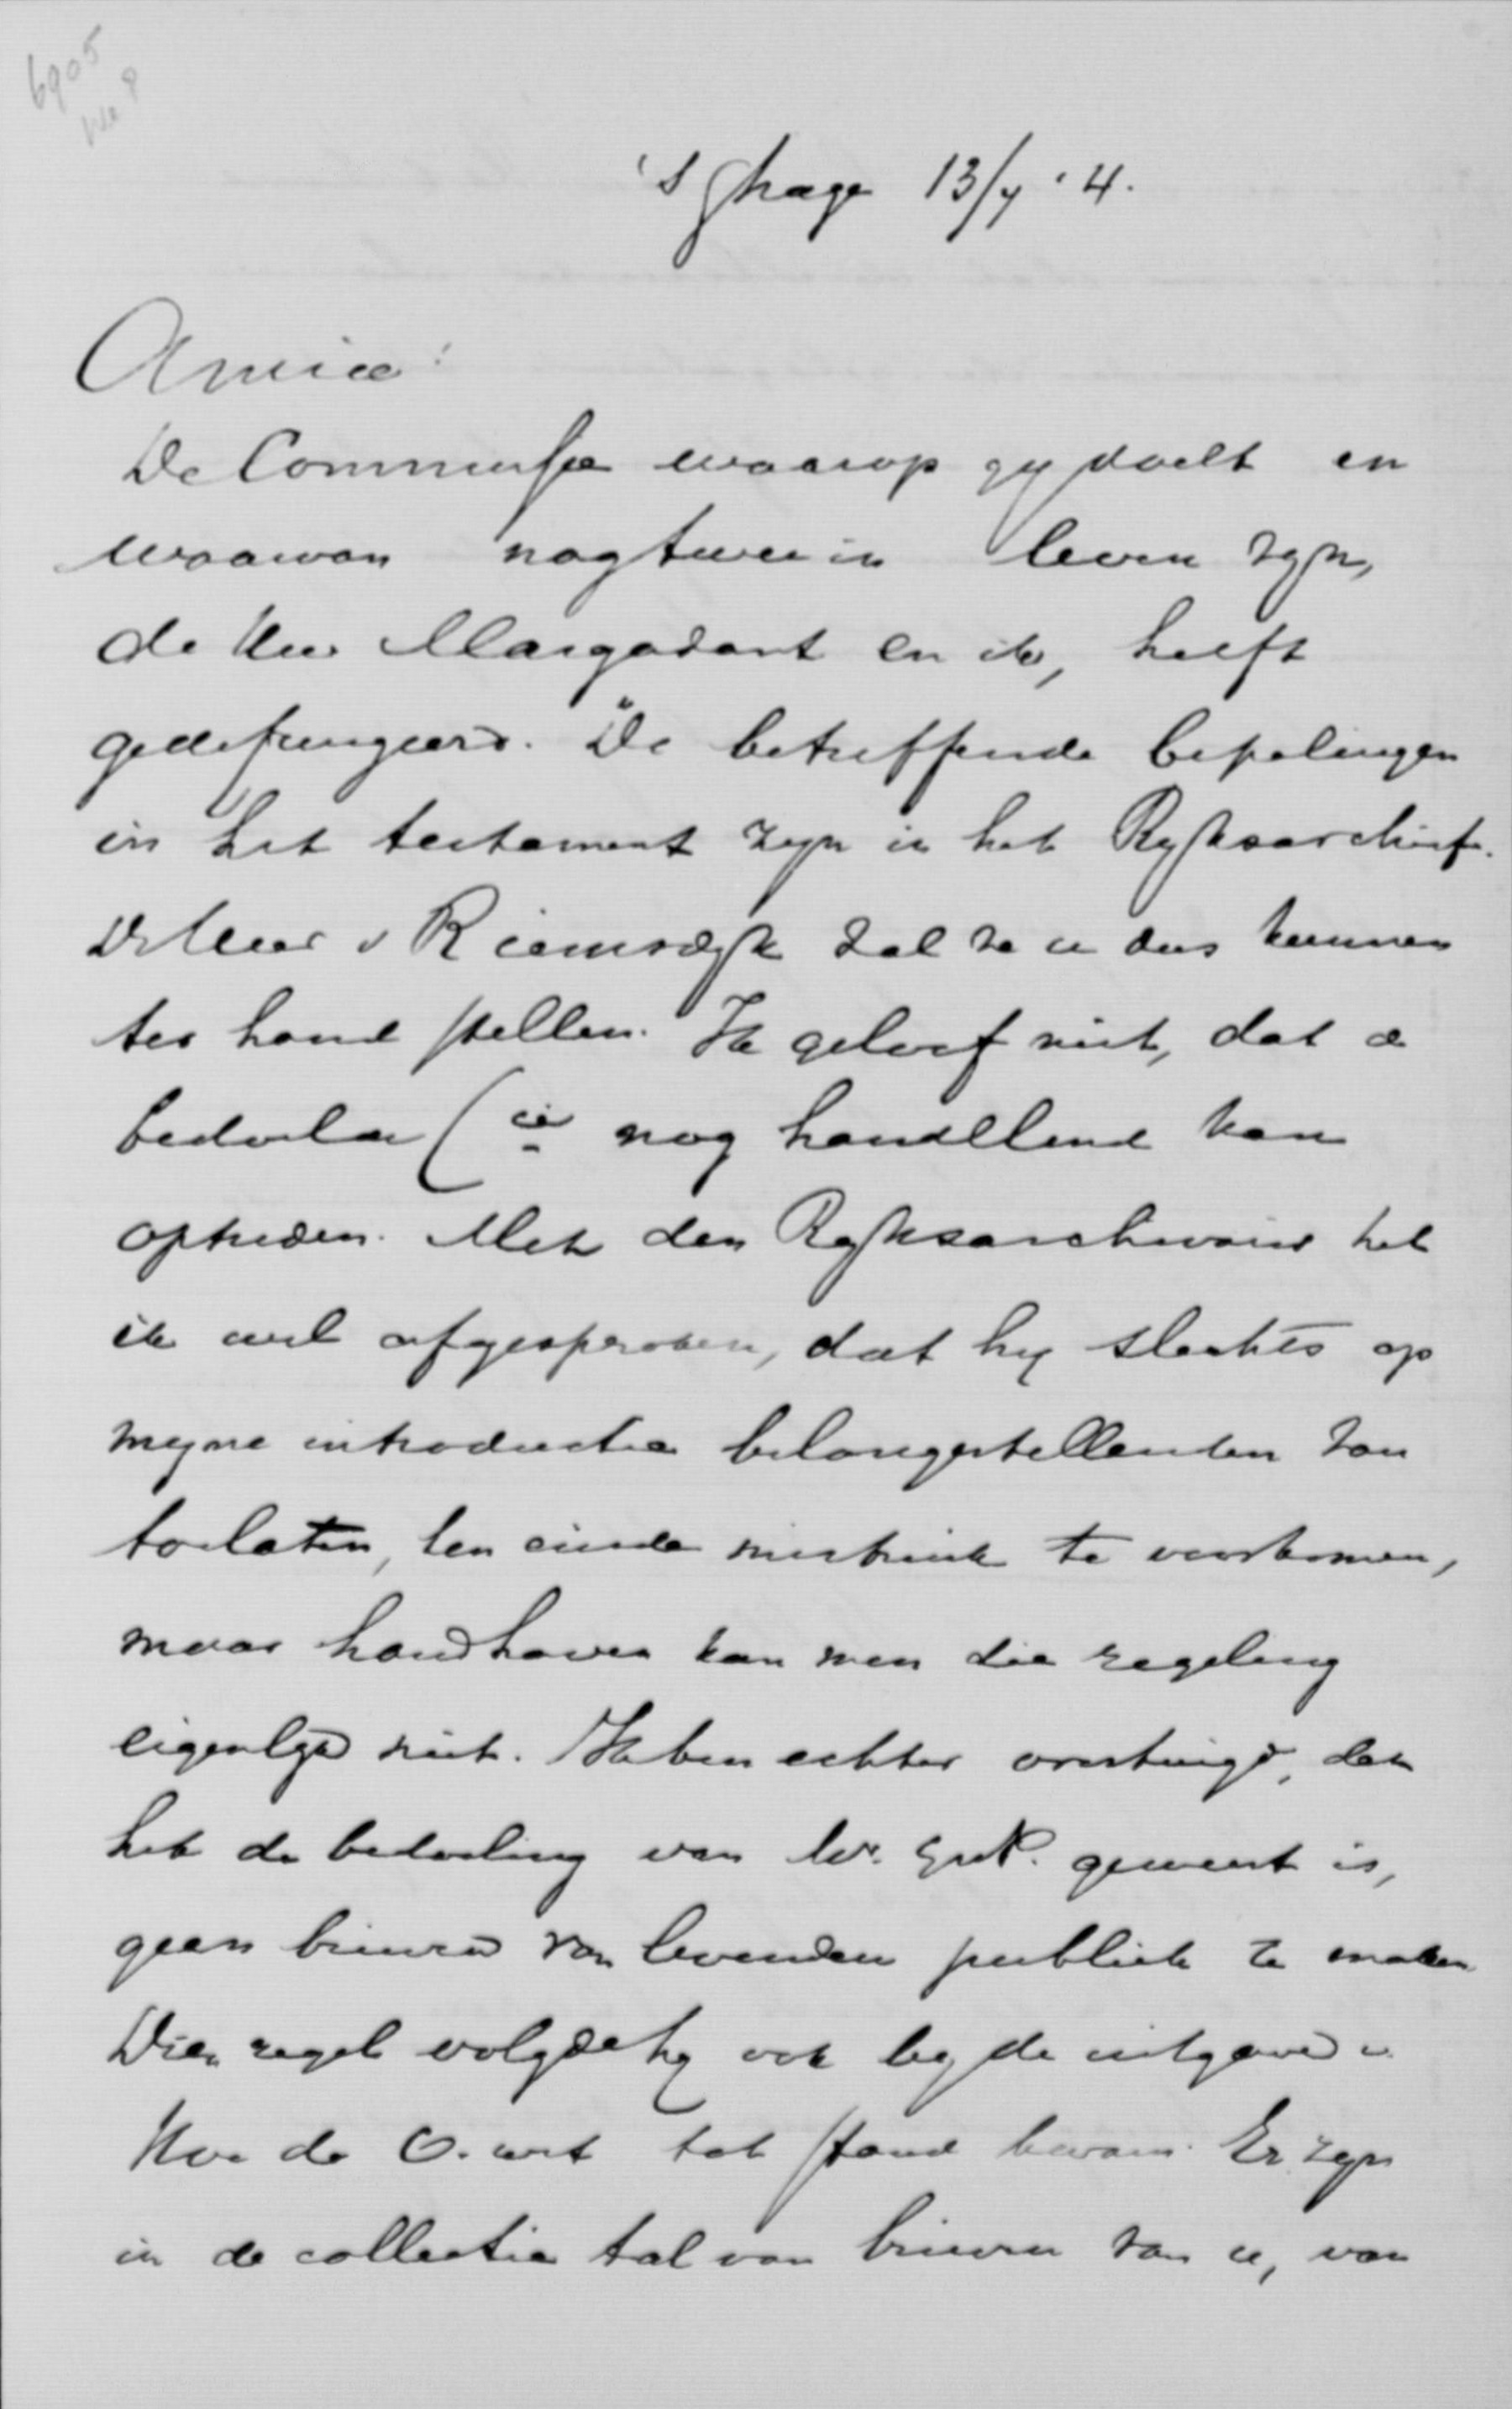 6905
'sGhage 13/4 '4.
Amice!
De Commissie waarop gij doelt en
waarvan nog twee in leven zijn,
de Heer Margadant en ik, heeft
gedefungeerd. De betreffende bepalingen
in het testament zijn in het Rijksarchief.
De Heer v Riemsdijk zal ze u dus kunnen
ter hand stellen. Ik geloof niet, dat de
bedoelde Cie nog handelend kan
optreden. Met den Rijksarchivaris heb
ik wel afgesproken, dat hij slechts op
mijne introductie belangstellenden zou
toelaten, ten einde misbruik te voorkomen,
maar handhaven kan men die regeling
eigenlijk niet. Ik ben echter overtuigd, dat
het de bedoeling van Mr. GrvP. geweest is,
geen brieven van levenden publiek te maken
Dien regel volgde hij ook bij de uitgave v.
Hoe de O. wet tot stand kwam. Er zijn
in de collectie tal van brieven van u, van